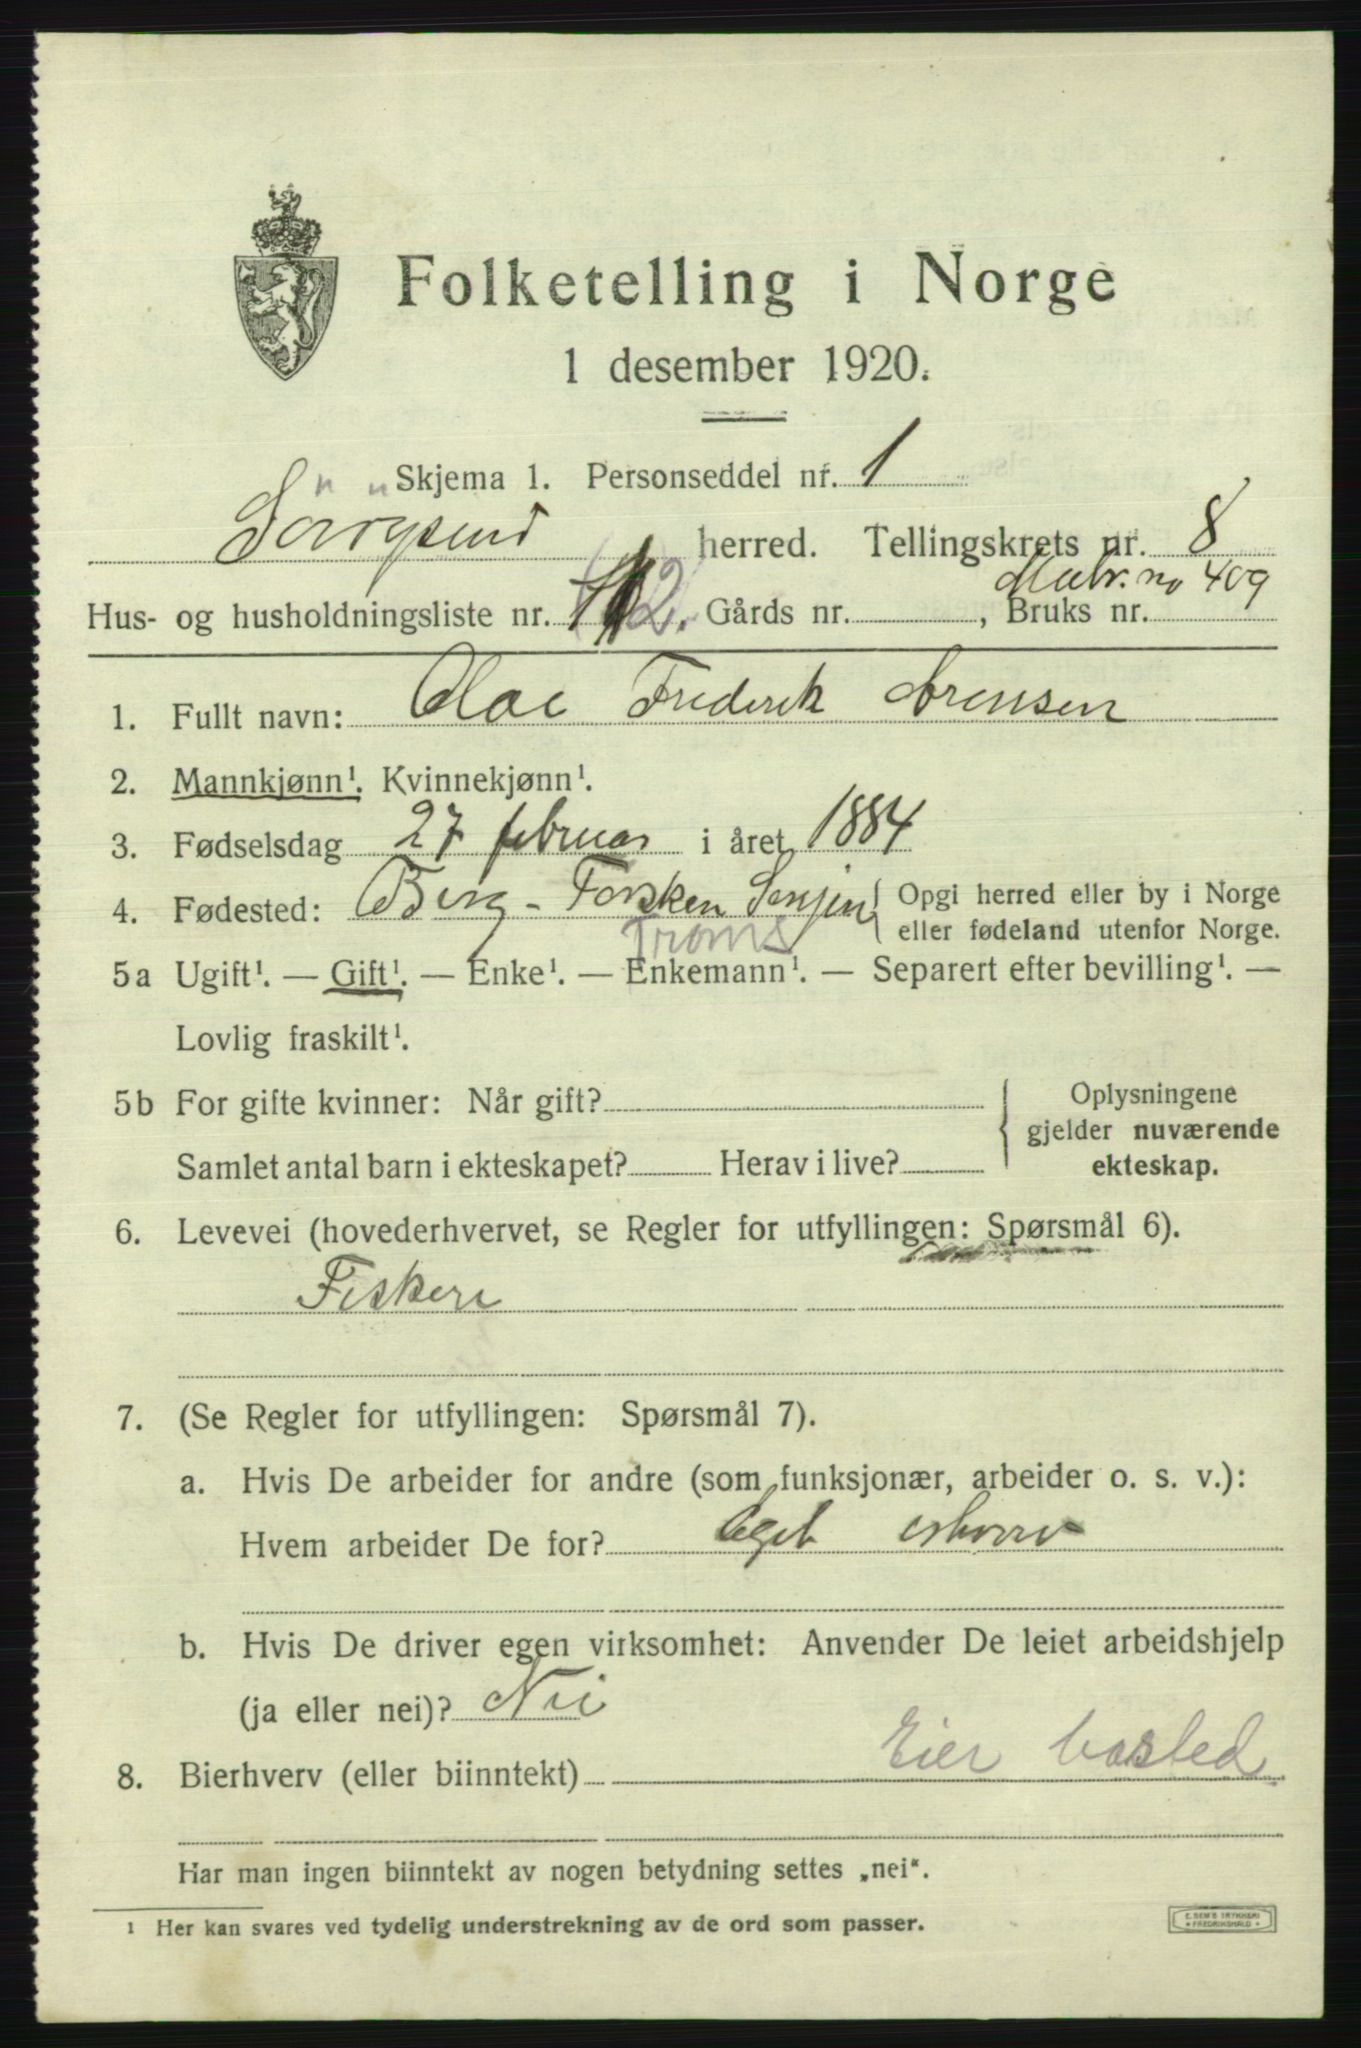 Folketelling i Norge
1 desember 1920.
Skjema 1. Personseddel nr. 1
herred. Tellingskrets nr. 8
Matr. no 409
Hus- og husholdningsliste nr. 12. Gårds nr. , Bruks nr.
1. Fullt navn: Olae Frederik Sørensen
2. Mannkjønn¹. Kvinnekjønn¹.
3. Fødselsdag 27 februar i året 1884
4. Fødested: Berg - Torsken Senjen Opgi herred eller by i Norge
Troms eller fødeland utenfor Norge.
5a Ugift¹. — Gift¹. — Enke¹. — Enkemann¹. — Separert efter bevilling¹. —
Lovlig fraskilt¹.
5b For gifte kvinner: Når gift? Oplysningene
gjelder nuværende
Samlet antal barn i ekteskapet? Herav i live? ekteskap.
6. Levevei (hovederhvervet, se Regler for utfyllingen: Spørsmål 6).
Fiskeri
7. (Se Regler for utfyllingen: Spørsmål 7).
a. Hvis De arbeider for andre (som funksjonær, arbeider o. s. v.):
Hvem arbeider De for? Eget
b. Hvis De driver egen virksomhet: Anvender De leiet arbeidshjelp
(ja eller nei)? Nei
8. Bierhverv (eller biinntekt) Eier bosted
Har man ingen biinntekt av nogen betydning settes „nei“.
¹ Her kan svares ved tydelig understrekning av de ord som passer.
E. SEM'S TRYKKERI
FREDRIKSHALD